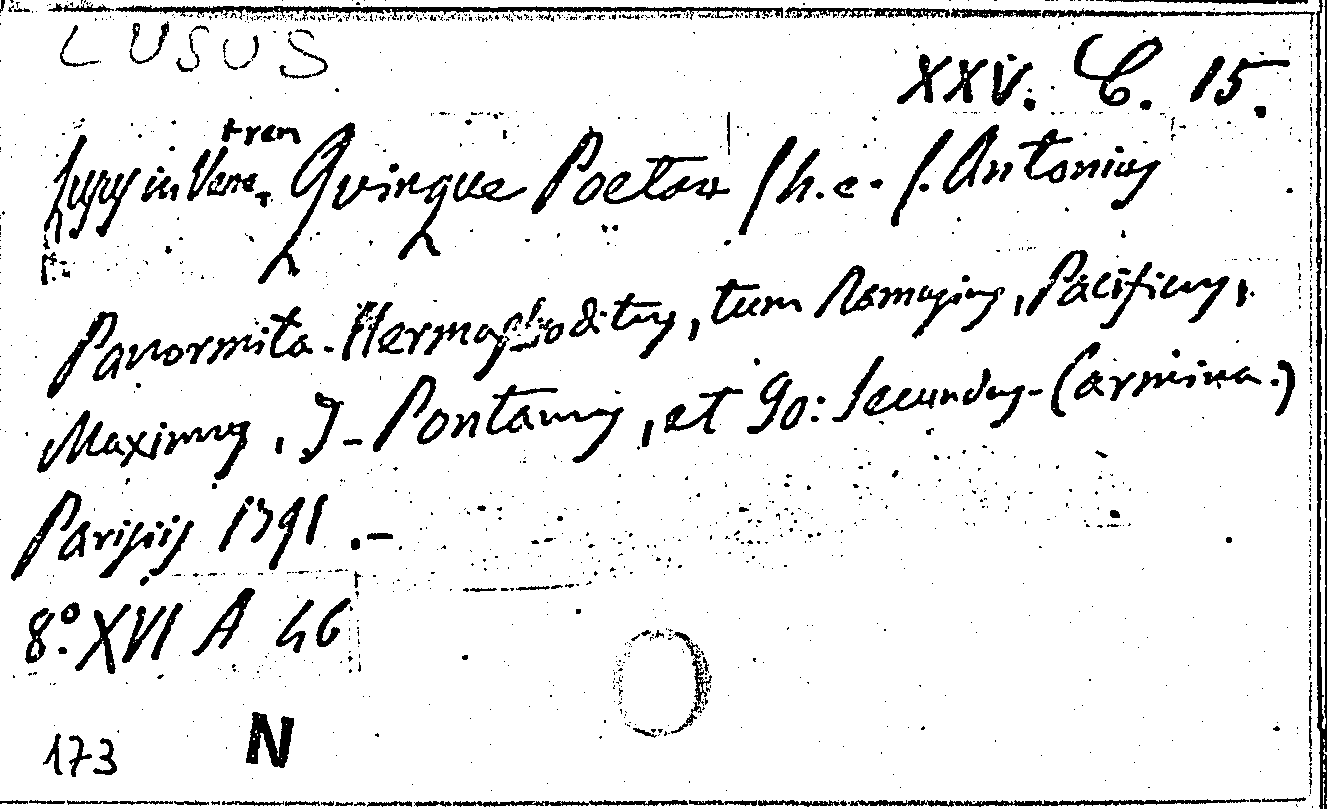 LUSUS
XXV. C. 15.
trem
Lusus in Vene. Quinque Poetar (h. e. (. Antonius
Panormita. Hermaphroditus, tum Ramusius, Pacificus,
Maximus, J. Pontanus, et Jo: Secundus. Carmina.)
Parisiis 1791 .-
8.° XVI A 46
173
N